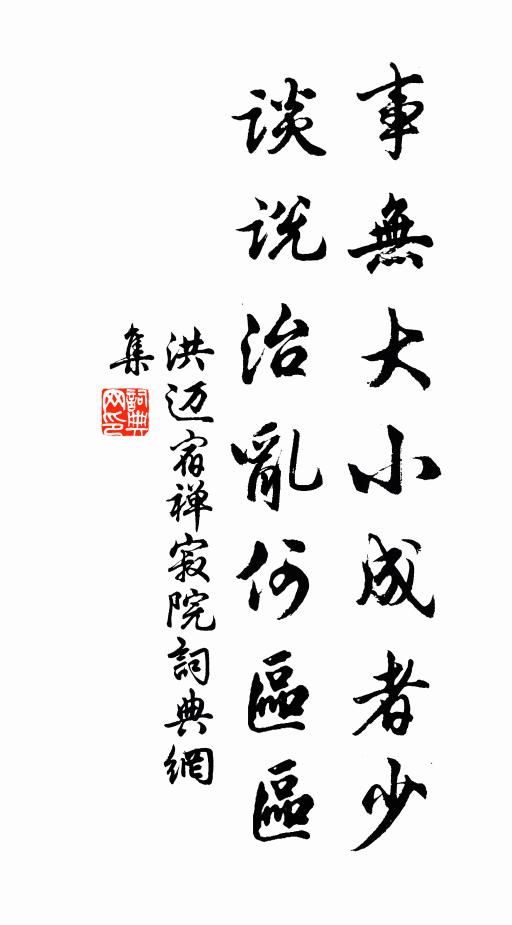 事無大小成者少
談説治亂何區區
洪迈宿禅寂院詞典網
集
詞典
网印